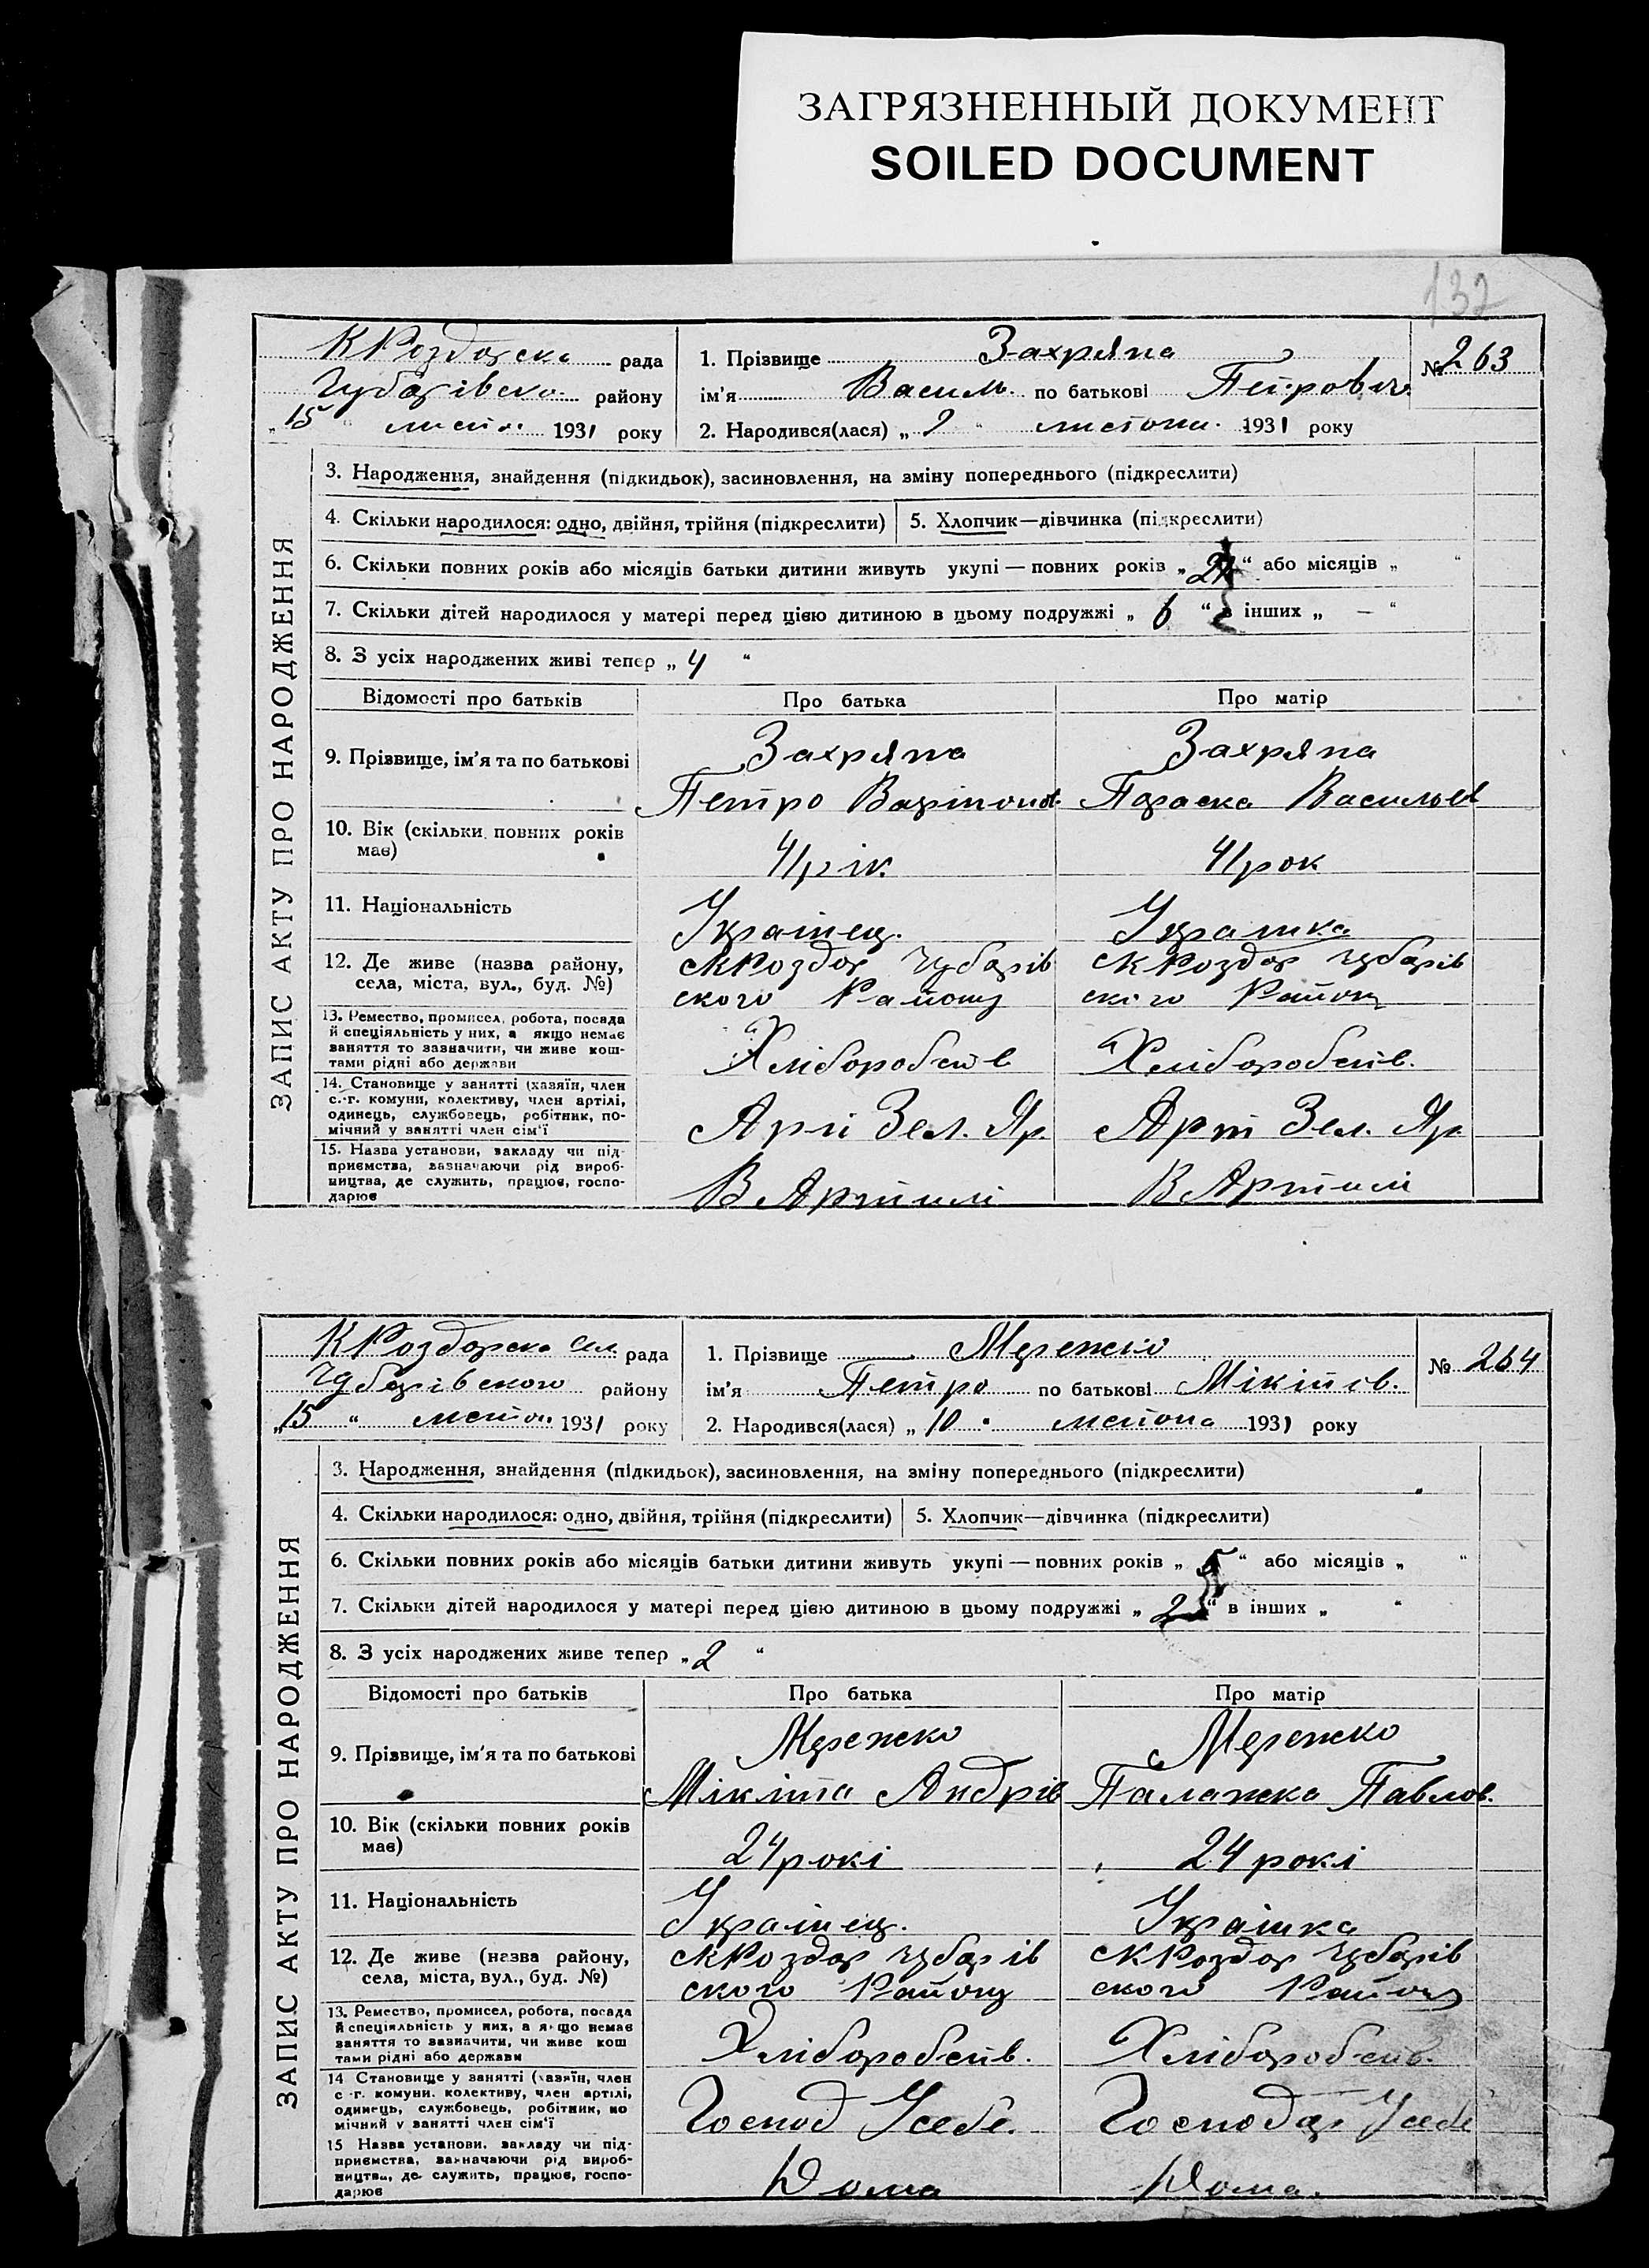 ЗАГРЯЗНЕННЫЙ ДОКУМЕНТ
SOILED DOCUMENT
132
ЗАПИС АКТУ ПРО НАРОДЖЕННЯ
К Роздорска рада
Чубарівско району
„15“ листоп 1931 року
1. Прізвище Захряпа
ім'я Василь по батькові Петрович
2. Народився(лася) „2“ листопа. 1931 року
№ 263
3. Народження, знайдення (підкидьок), засиновлення, на зміну попереднього (підкреслити)
4. Скільки народилося: одно, двійня, трійня (підкреслити) 5. Хлопчик—дівчинка (підкреслити)
6. Скільки повних років або місяців батьки дитини живуть укупі — повних років „ “ або місяців „ “
7. Скільки дітей народилося у матері перед цією дитиною в цьому подружжі „6“ в інших „ — “
8. З усіх народжених живі тепер „4“
Відомості про батьків Про батька Про матір
9. Прізвище, ім'я та по батькові Захряпа Захряпа
Петро Параска Васильев
10. Вік (скільки повних років
має) 41 рік. 41 рок
11. Національність Українец. Українка
12. Де живе (назва району,
села, міста, вул., буд. №) с К Роздор Чубарів с К Роздор Чубарів
ского Району ского Району
13. Ремество, промисел, робота, посада
й спеціяльність у них, а якщо немає
заняття то зазначити, чи живе кош-
тами рідні або держави Хліборобств Хліборобств.
14. Становище у занятті (хазяїн, член
с.-г. комуни, колективу, член артілі,
одинець, службовець, робітник, по-
мічний у занятті член сім'ї Арті Зел. Яр. Арт Зел. Яр.
15. Назва установи, закладу чи під-
приємства, зазначаючи рід вироб-
ництва, де служить, працює, госпо-
дарює В Артилі В Артилі
ЗАПИС АКТУ ПРО НАРОДЖЕННЯ
К Роздорска Сел рада
Чубарівского району
„15“ листоп 1931 року
1. Прізвище Мережко
ім'я Петро по батькові Мікітов.
2. Народився(лася) „10“ листопа 1931 року
№ 264
3. Народження, знайдення (підкидьок), засиновлення, на зміну попереднього (підкреслити)
4. Скільки народилося: одно, двійня, трійня (підкреслити) 5. Хлопчик—дівчинка (підкреслити)
6. Скільки повних років або місяців батьки дитини живуть укупі — повних років „5“ або місяців „ “
7. Скільки дітей народилося у матері перед цією дитиною в цьому подружжі „2“ в інших „ “
8. З усіх народжених живе тепер „2“
Відомості про батьків Про батька Про матір
9. Прізвище, ім'я та по батькові Мережко Мережко
Мікіта Андрів Палажка Павлов.
10. Вік (скільки повних років
має) 24 рокі 24 рокі
11. Національність Українец. Українка
12. Де живе (назва району,
села, міста, вул., буд. №) с К Роздор Чубарів с К Роздор Чубарів
ского Району ского Району
13. Ремество, промисел, робота, посада
й спеціяльність у них, а якщо немає
заняття то зазначити, чи живе кош
тами рідні або держави Хліборобств. Хліборобств.
14 Становище у занятті (хазяїн, член
с -г. комуни. колективу, член артілі,
одинець, службовець, робітник, по
мічний у занятті член сім'ї Господ Усебе. Господар Усебе
15 Назва установи. закладу чи під-
приємства, зазначаючи рід вироб-
ництва, де служить, працює, госпо-
дарює Дома Дома.